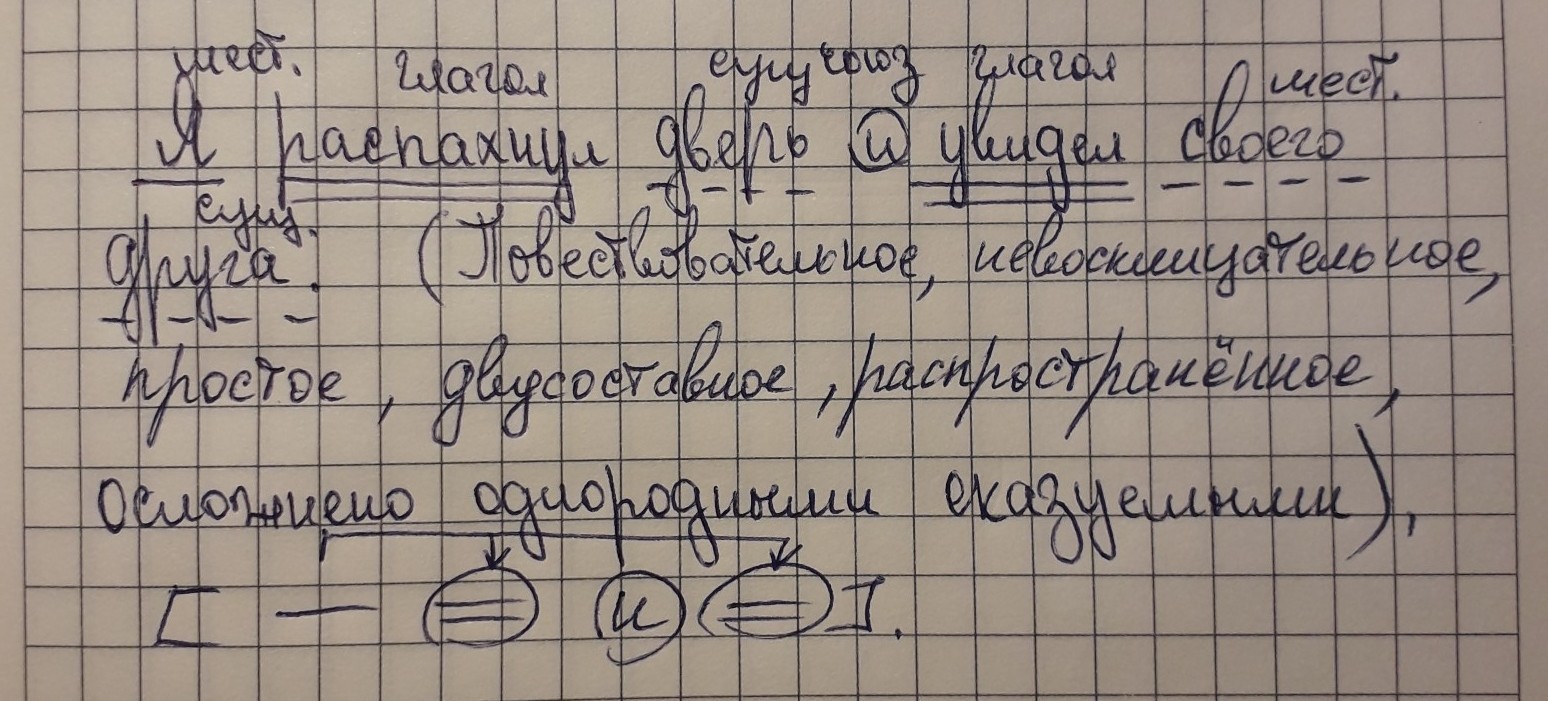 мест. глагол сущ союз глагол мест.
Я распахнул дверь и увидел своего
сущ.
друга. (Повествовательное, невосклицательное,
простое, двусоставное, распространённое,
осложнено однородными сказуемыми).
[ — = и = ].